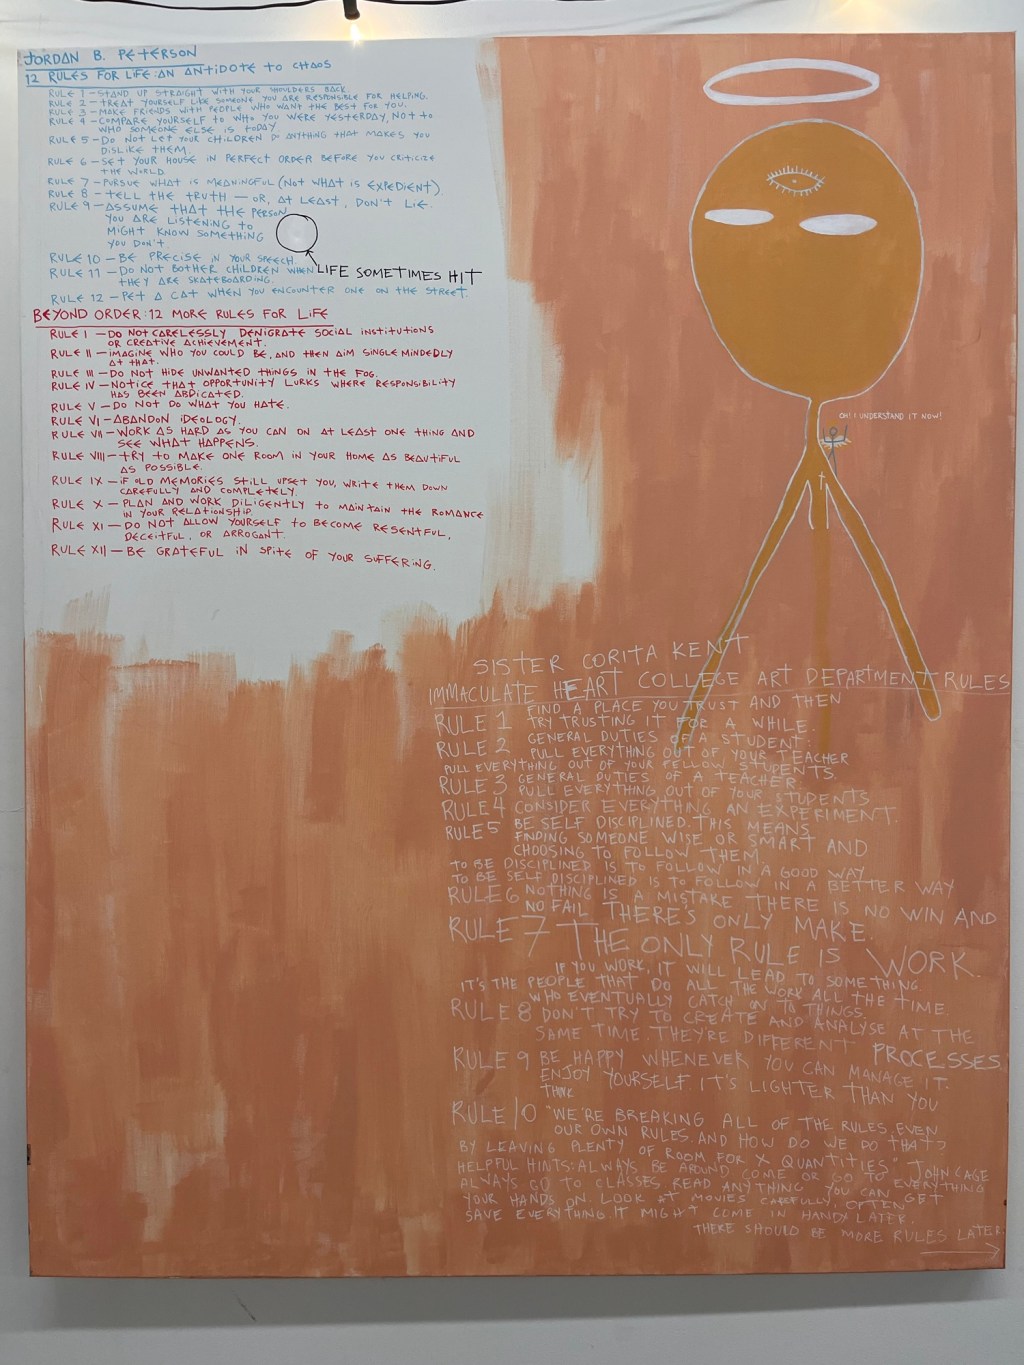 JORDAN B. PETERSON
12 RULES FOR LIFE: AN ANTIDOTE TO CHAOS
RULE 1 – STAND UP STRAIGHT WITH YOUR SHOULDERS BACK.
RULE 2 – TREAT YOURSELF LIKE SOMEONE YOU ARE RESPONSIBLE FOR HELPING.
RULE 3 – MAKE FRIENDS WITH PEOPLE WHO WANT THE BEST FOR YOU.
RULE 4 – COMPARE YOURSELF TO WHO YOU WERE YESTERDAY, NOT TO
WHO SOMEONE ELSE IS TODAY
RULE 5 – DO NOT LET YOUR CHILDREN DO ANYTHING THAT MAKES YOU
DISLIKE THEM.
RULE 6 – SET YOUR HOUSE IN PERFECT ORDER BEFORE YOU CRITICIZE
THE WORLD.
RULE 7 – PURSUE WHAT IS MEANINGFUL (NOT WHAT IS EXPEDIENT).
RULE 8 – TELL THE TRUTH – OR, AT LEAST, DON'T LIE.
RULE 9 – ASSUME THAT THE PERSON
YOU ARE LISTENING TO
MIGHT KNOW SOMETHING
YOU DON'T.
RULE 10 – BE PRECISE IN YOUR SPEECH.
RULE 11 – DO NOT BOTHER CHILDREN WHEN
THEY ARE SKATEBOARDING.
LIFE SOMETIMES HIT
RULE 12 – PET A CAT WHEN YOU ENCOUNTER ONE ON THE STREET.
BEYOND ORDER: 12 MORE RULES FOR LIFE
RULE I – DO NOT CARELESSLY DENIGRATE SOCIAL INSTITUTIONS
OR CREATIVE ACHIEVEMENT.
RULE II – IMAGINE WHO YOU COULD BE, AND THEN AIM SINGLE MINDEDLY
AT THAT.
RULE III – DO NOT HIDE UNWANTED THINGS IN THE FOG.
RULE IV – NOTICE THAT OPPORTUNITY LURKS WHERE RESPONSIBILITY
HAS BEEN ABDICATED.
RULE V – DO NOT DO WHAT YOU HATE.
RULE VI – ABANDON IDEOLOGY.
RULE VII – WORK AS HARD AS YOU CAN ON AT LEAST ONE THING AND
SEE WHAT HAPPENS.
RULE VIII – TRY TO MAKE ONE ROOM IN YOUR HOME AS BEAUTIFUL
AS POSSIBLE.
RULE IX – IF OLD MEMORIES STILL UPSET YOU, WRITE THEM DOWN
CAREFULLY AND COMPLETELY.
RULE X – PLAN AND WORK DILIGENTLY TO MAINTAIN THE ROMANCE
IN YOUR RELATIONSHIP.
RULE XI – DO NOT ALLOW YOURSELF TO BECOME RESENTFUL,
DECEITFUL, OR ARROGANT.
RULE XII – BE GRATEFUL IN SPITE OF YOUR SUFFERING.
OH! I UNDERSTAND IT NOW!
SISTER CORITA KENT
IMMACULATE HEART COLLEGE ART DEPARTMENT RULES
RULE 1 FIND A PLACE YOU TRUST AND THEN
TRY TRUSTING IT FOR A WHILE.
RULE 2 GENERAL DUTIES OF A STUDENT:
PULL EVERYTHING OUT OF YOUR TEACHER
PULL EVERYTHING OUT OF YOUR FELLOW STUDENTS.
RULE 3 GENERAL DUTIES OF A TEACHER:
PULL EVERYTHING OUT OF YOUR STUDENTS
RULE 4 CONSIDER EVERYTHING AN EXPERIMENT.
RULE 5 BE SELF DISCIPLINED. THIS MEANS
FINDING SOMEONE WISE OR SMART AND
CHOOSING TO FOLLOW THEM.
TO BE DISCIPLINED IS TO FOLLOW IN A GOOD WAY
TO BE SELF DISCIPLINED IS TO FOLLOW IN A BETTER WAY
RULE 6 NOTHING IS A MISTAKE THERE IS NO WIN AND
NO FAIL THERE'S ONLY MAKE.
RULE 7 THE ONLY RULE IS WORK.
IF YOU WORK, IT WILL LEAD TO SOMETHING.
IT'S THE PEOPLE THAT DO ALL THE WORK ALL THE TIME
WHO EVENTUALLY CATCH ON TO THINGS.
RULE 8 DON'T TRY TO CREATE AND ANALYSE AT THE
SAME TIME. THEY'RE DIFFERENT PROCESSES.
RULE 9 BE HAPPY WHENEVER YOU CAN MANAGE IT.
ENJOY YOURSELF. IT'S LIGHTER THAN YOU
THINK
RULE 10 "WE'RE BREAKING ALL OF THE RULES, EVEN
OUR OWN RULES. AND HOW DO WE DO THAT?
BY LEAVING PLENTY OF ROOM FOR X QUANTITIES." JOHN CAGE
HELPFUL HINTS: ALWAYS BE AROUND. COME OR GO TO EVERYTHING
ALWAYS GO TO CLASSES. READ ANYTHING YOU CAN GET
YOUR HANDS ON. LOOK AT MOVIES CAREFULLY, OFTEN
SAVE EVERYTHING. IT MIGHT COME IN HANDY LATER.
THERE SHOULD BE MORE RULES LATER.